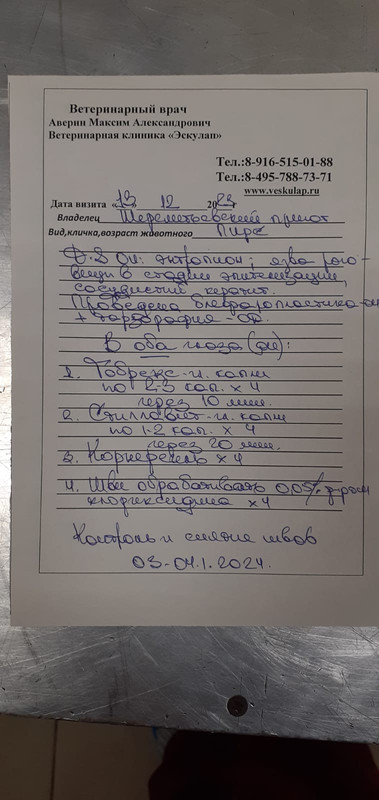 Ветеринарный врач
Аверин Максим Александрович
Ветеринарная клиника «Эскулап»
Тел.:8-916-515-01-88
Тел.:8-495-788-73-71
www.veskulap.ru
Дата визита «13» 12 2023
Владелец Шереметьевский приют
Вид,кличка,возраст животного Пирс
Д-З OU: энтропион; язва рого-
вицы в стадии эпителизации,
сосудистый кератит.
Проведена блефаропластика-OU
+ тарзорафия -
В оба глаза (OU):
1. Тобрекс-гл. капли
по 2-3 кап. х 4
через 10 мин.
2. Стиллавит-гл. капли
по 1-2 кап. х 4
через 20 мин.
3. Корнерегель х 4
4. Швы обрабатывать 0,05% р-ром
хлоргексидина х4
Контроль и снятие швов
03-04.1.2024.